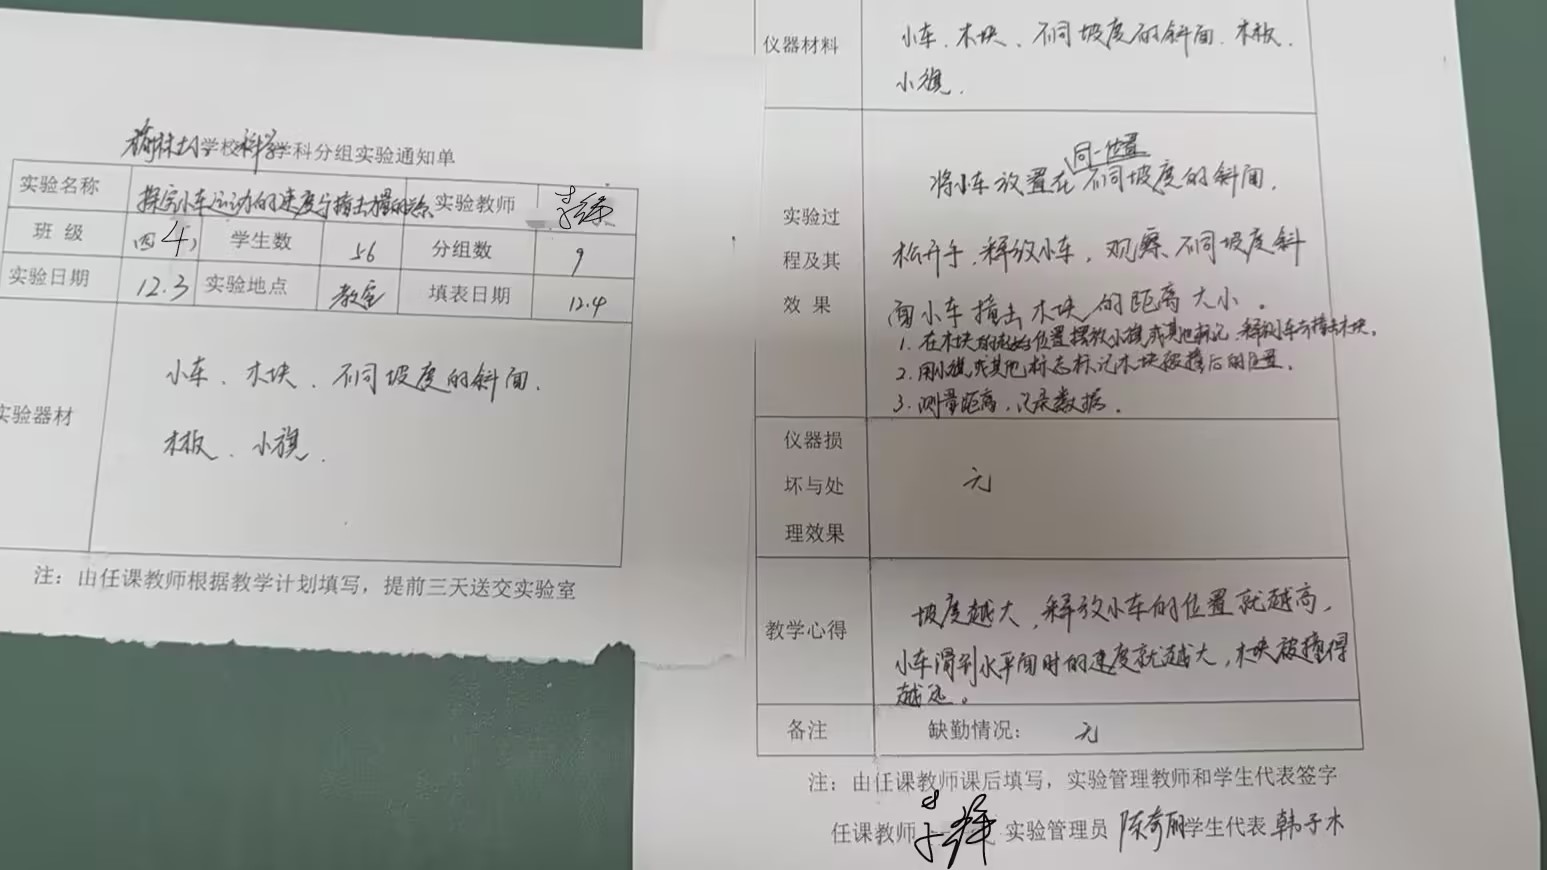 榆林小学校科学学科分组实验通知单
实验名称 探究小车运动的速度与撞击的 实验教师
班 级 四4) 学生数 56 分组数 9
实验日期 12.3 实验地点 教室 填表日期 12.4
实验器材
小车、木块、不同坡度的斜面、
木板、小旗.
注：由任课教师根据教学计划填写，提前三天送交实验室
仪器材料
小车、木块、不同坡度的斜面、木板、
小旗.
实验过
程及其
效 果
同一位置
将小车放置在不同坡度的斜面，
松开手，释放小车，观察不同坡度斜
面小车撞击木块的距离大小。
1. 在木块的起始位置摆放小旗或其他标记，释放小车去撞击木块。
2. 用小旗或其他标志标记木块被撞后的位置。
3. 测量距离，记录数据。
仪器损
坏与处
理效果
无
教学心得
坡度越大，释放小车的位置就越高，
小车滑到水平面时的速度就越大，木块被撞得
越远。
备注 缺勤情况： 无
注：由任课教师课后填写，实验管理教师和学生代表签字
任课教师 实验管理员 陈奇丽 学生代表 韩子木